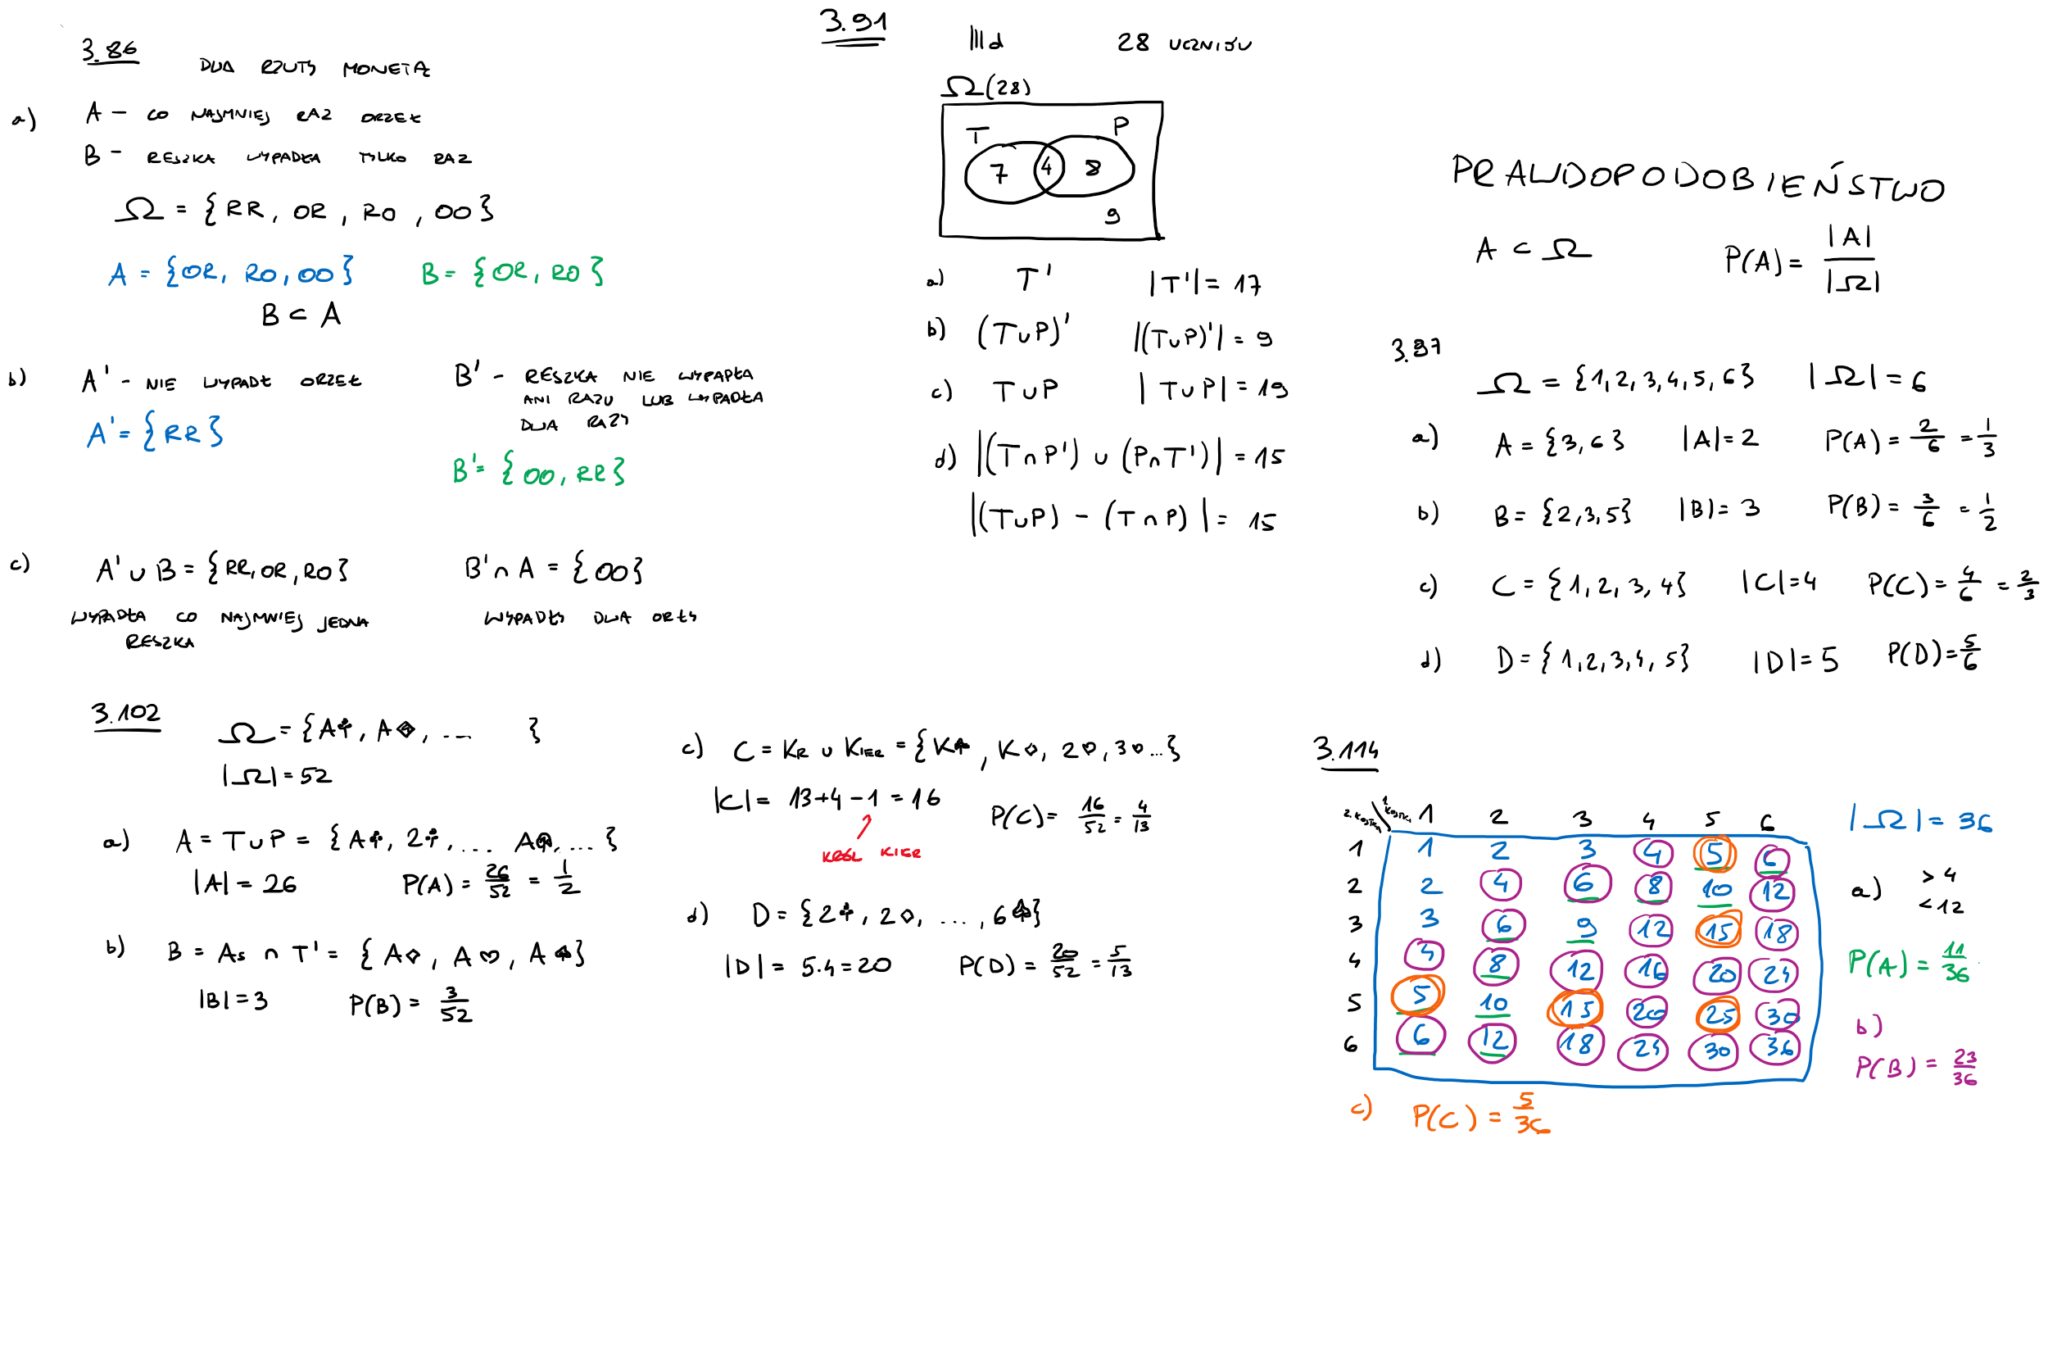 3.86
DWA RZUTY MONETĄ
a) A – CO NAJMNIEJ RAZ ORZEŁ
B – RESZKA WYPADŁA TYLKO RAZ
Ω = {RR, OR, RO, OO}
A = {OR, RO, OO} B = {OR, RO}
B ⊂ A
b) A' - NIE WYPADŁ ORZEŁ
A' = {RR}
B' - RESZKA NIE WYPADŁA
ANI RAZU LUB WYPADŁA
DWA RAZY
B' = {OO, RR}
c) A' ∪ B = {RR, OR, RO} B' ∩ A = {OO}
WYPADŁA CO NAJMNIEJ JEDNA
RESZKA
WYPADŁY DWA ORŁY
3.91
IIId 28 UCZNIÓW
Ω(28)
T P
7 4 8
9
a) T' |T'| = 17
b) (T∪P)' |(T∪P)'| = 9
c) T∪P |T∪P| = 19
d) |(T∩P') ∪ (P∩T')| = 15
|(T∪P) - (T∩P)| = 15
PRAWDOPODOBIEŃSTWO
A ⊂ Ω P(A) = |A|/|Ω|
3.97
Ω = {1,2,3,4,5,6} |Ω| = 6
a) A = {3,6} |A| = 2 P(A) = 2/6 = 1/3
b) B = {2,3,5} |B| = 3 P(B) = 3/6 = 1/2
c) C = {1,2,3,4} |C| = 4 P(C) = 4/6 = 2/3
d) D = {1,2,3,4,5} |D| = 5 P(D) = 5/6
3.102
Ω = {A♣, A♦, ... }
|Ω| = 52
a) A = T∪P = {A♣, 2♣, ... A♠, ...}
|A| = 26 P(A) = 26/52 = 1/2
b) B = As ∩ T' = {A♦, A♥, A♠}
|B| = 3 P(B) = 3/52
c) C = KR ∪ KIER = {K♠, K♦, 2♥, 3♥...}
|C| = 13+4-1 = 16 P(C) = 16/52 = 4/13
KRÓL KIER
d) D = {2♣, 2♦, ..., 6♠}
|D| = 5·4 = 20 P(D) = 20/52 = 5/13
3.114
2. KOSTKA 1. KOSTKA 1 2 3 4 5 6
1 1 2 3 4 5 6
2 2 4 6 8 10 12
3 3 6 9 12 15 18
4 4 8 12 16 20 24
5 5 10 15 20 25 30
6 6 12 18 24 30 36
|Ω| = 36
a) > 4
< 12
P(A) = 11/36
b)
P(B) = 23/36
c) P(C) = 5/36